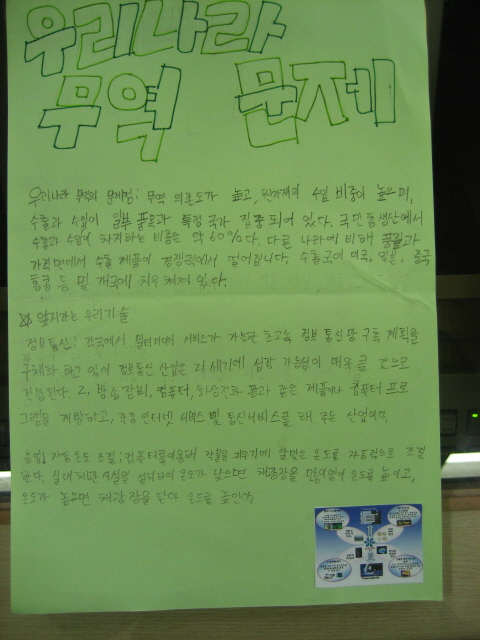 우리나라
무역 문제
우리나라 무역의 문제점: 무역 의존도가 높고, 원자재의 수입 비중이 높으며,
수출과 수입이 일부 품목과 특정 국가 집중 되어 있다. 국민 총생산에서
수출과 수입이 차지하는 비중은 약 60%다. 다른 나라에 비해 품질과
가격면에서 수출 제품이 경쟁력에서 떨어집니다. 수출국이 미국, 일본, 중국
홍콩 등 몇 개국에 치우쳐져 있다.
앞서가는 우리기술
정보통신: 각국에서 멀티미디어 서비스가 가능한 초고속 정보 통신망 구축 계획을
구체화 하고 있어 정보통신 산업은 21세기에 성장 가능성이 매우 클 것으로
전망된다. 2. 방송장비, 컴퓨터, 화상전화 등과 같은 제품이나 컴퓨터 프로
그램을 개발하고, 각종 인터넷 서비스 및 통신서비스를 해 주는 산업이다.
농업: 자동온도 조절: 컴퓨터를 이용해 작물을 키우기에 알맞은 온도를 자동적으로 조절
한다. 실내 온도가 낮으면 온도를 높이고,
온도가 높으면 채광창을 닫아 온도를 높인다.